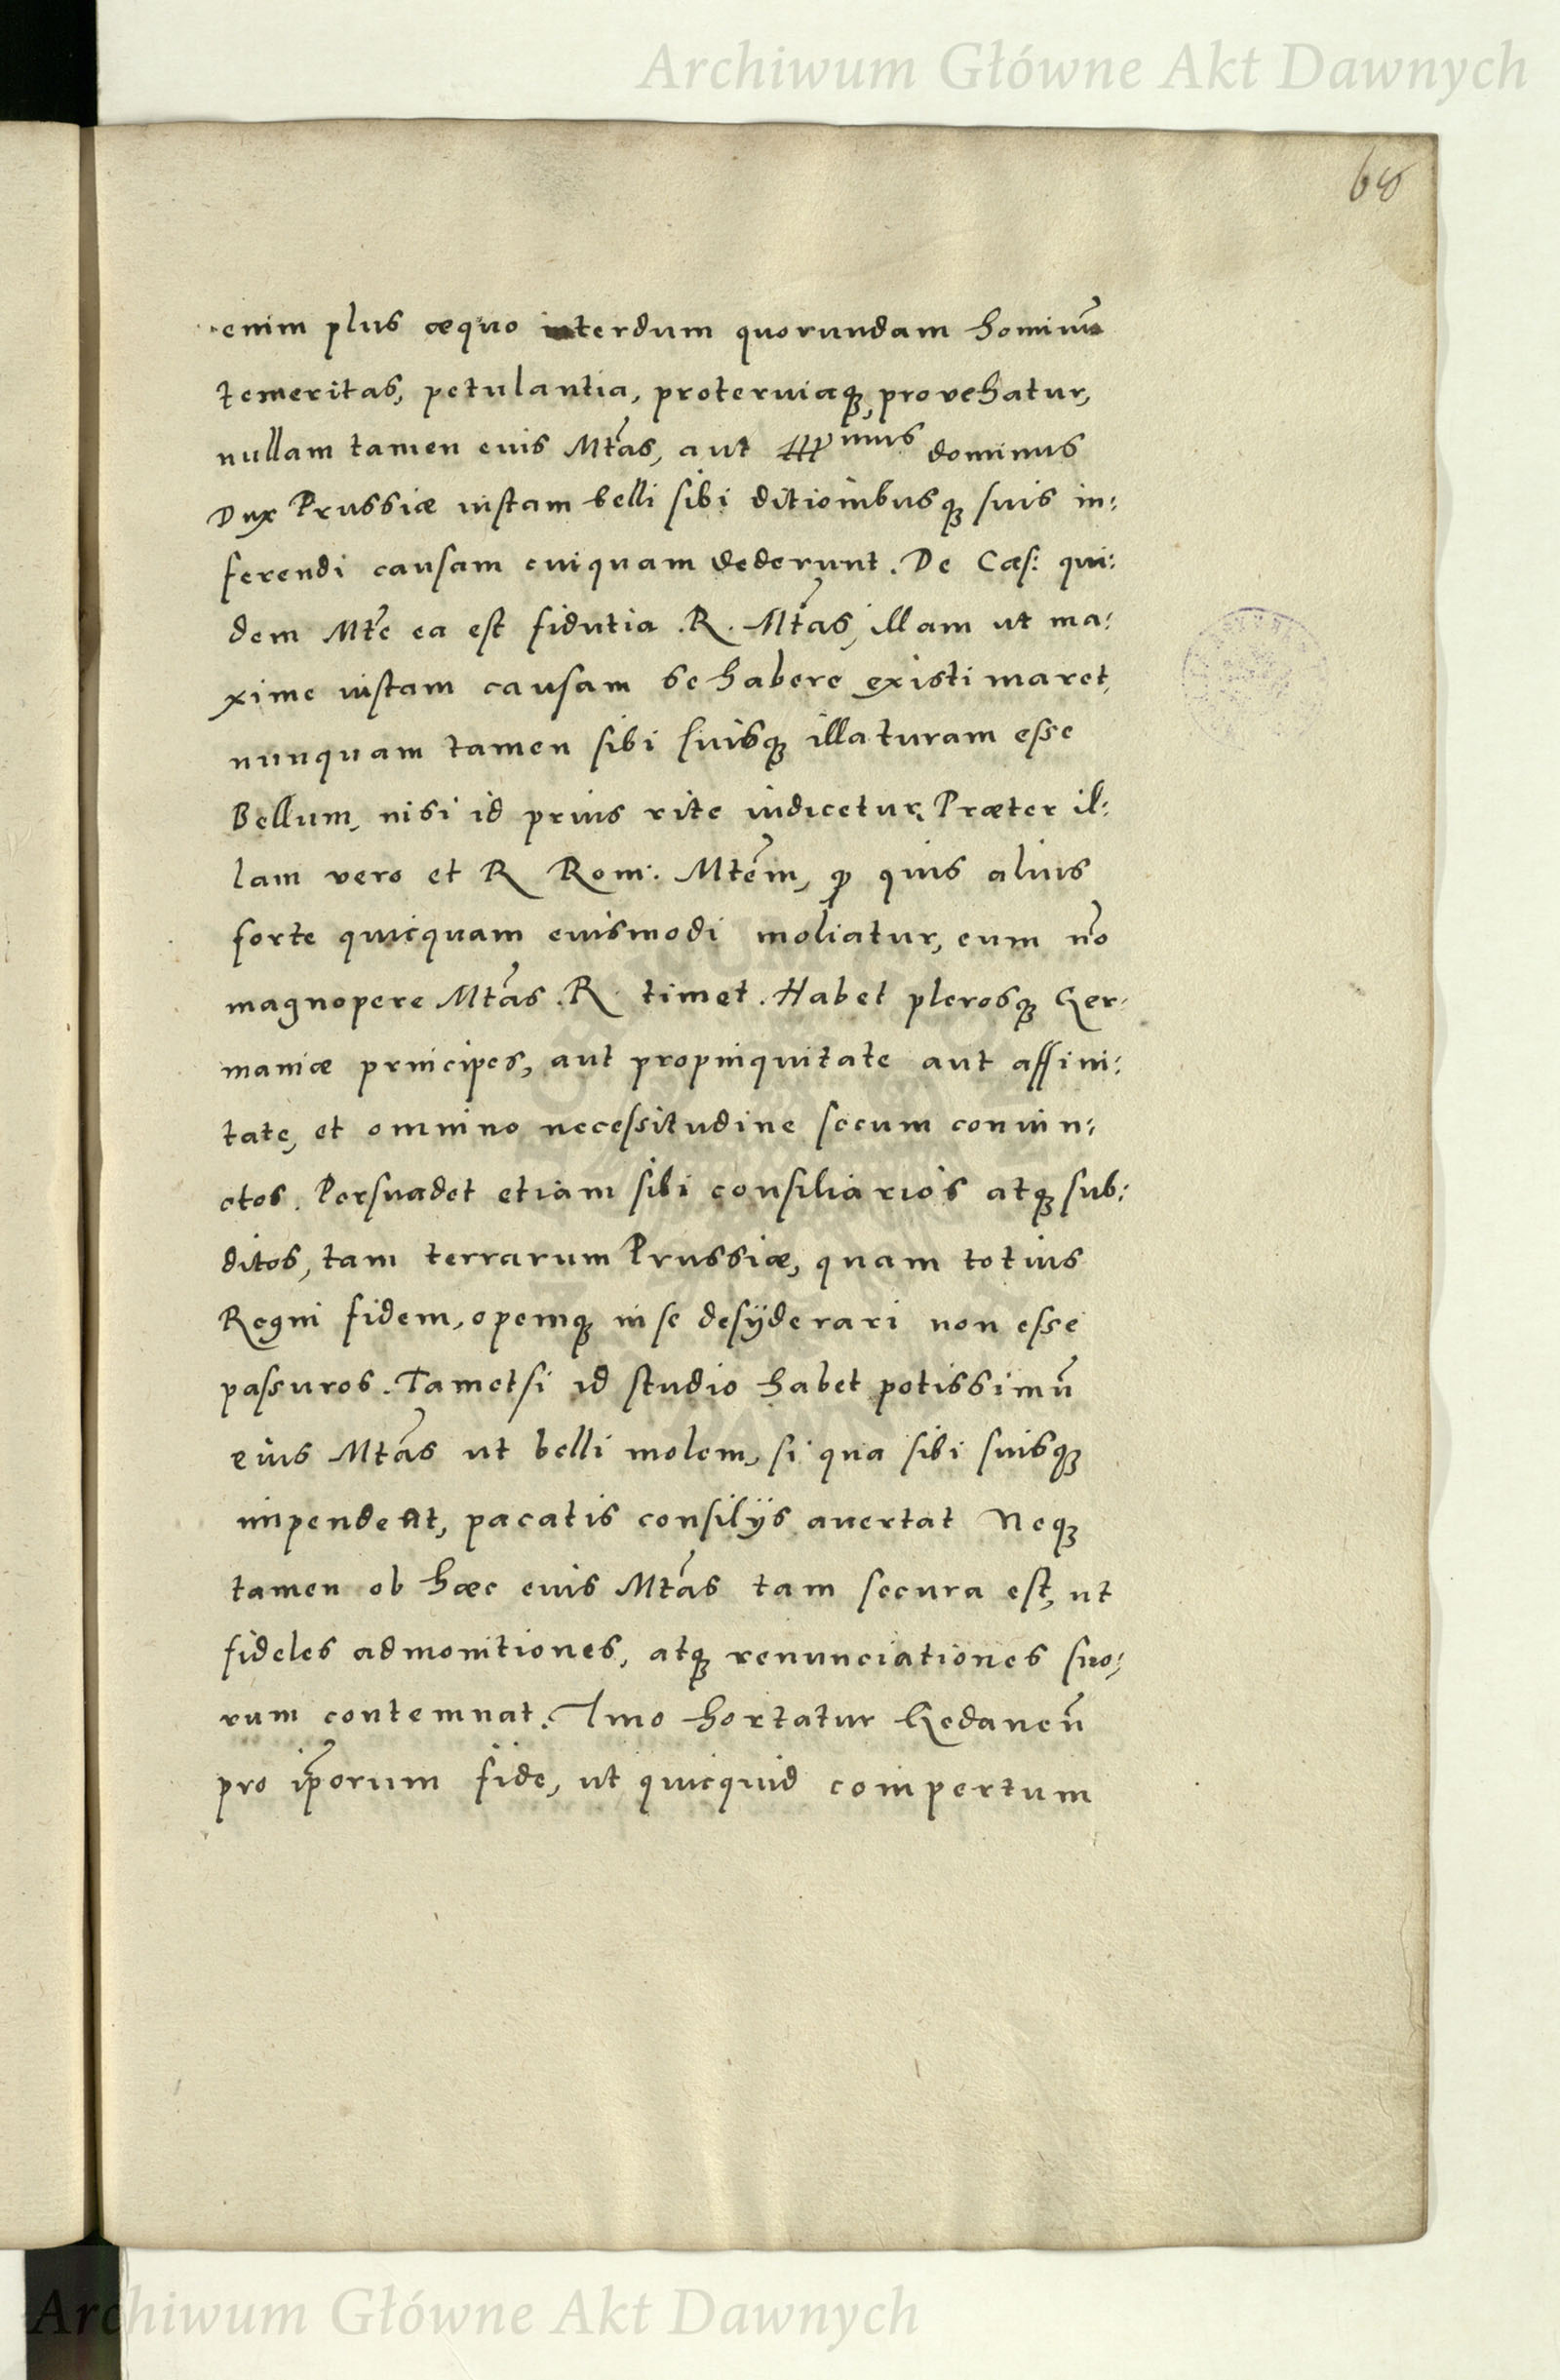 Archiwum Główne Akt Dawnych
68
enim plus æquo interdum quorundam hominū
temeritas, petulantia, proteruiaqꝫ, provehatur,
nullam tamen eius Mtãs, aut Illmus dominus
Dux Prussiæ iustam belli sibi ditionibusqꝫ suis in:
ferendi causam cuiquam dederunt. De Cæs: qui:
dem Mtẽ ea est fidutia .R. Mtãs, illam ut ma:
xime iustam causam se habere existimaret,
nunquam tamen sibi suisqꝫ illaturam esse
Bellum, nisi id prius rite indicetur, Præter il:
lam vero et R Rom: Mtẽm, qꝫ quis alius
forte quicquam eiusmodi moliatur, eum nõ
magnopere Mtãs .R. timet. Habet plerosqꝫ Ger:
maniæ principes, aut propinquitate aut affini:
tate, et omnino necessitudine secum conuin:
ctos. Persuadet etiam sibi consiliarios atqꝫ sub:
ditos, tam terrarum Prussiæ, quam totius
Regni fidem, opemqꝫ in se desyderari non esse
passuros. Tametsi id studio habet potissimū
eius Mtãs ut belli molem, si qua sibi suisqꝫ
impendeat, pacatis consilijs auertat Neqꝫ
tamen ob hæc eius Mtãs tam secura est, ut
fideles admonitiones, atqꝫ renunciationes suo:
rum contemnat. Imo hortatur Gedaneñ
pro ip̃orum fide, ut quicquid compertum
Archiwum Główne Akt Dawnych